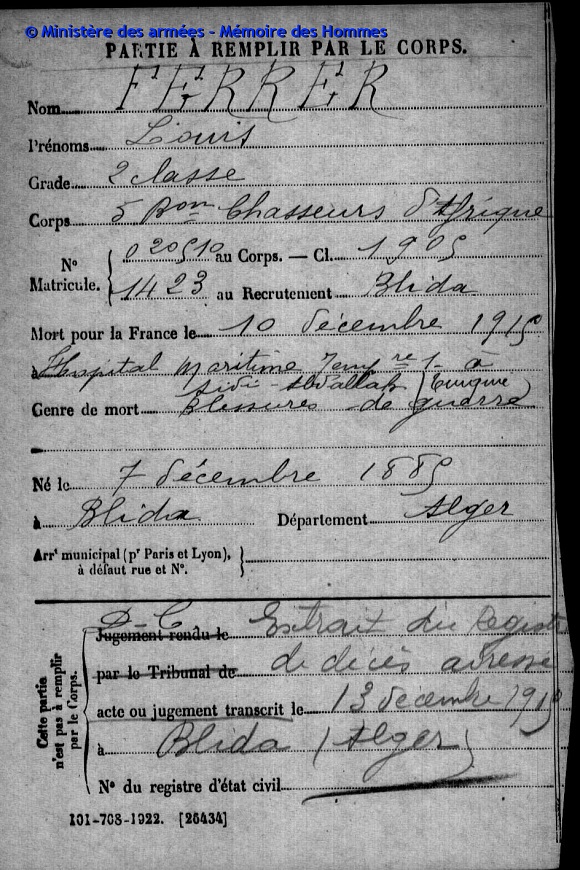 © Ministère des armées - Mémoire des Hommes
PARTIE À REMPLIR PAR LE CORPS.
Nom FERRER
Prénoms Louis
Grade 2 classe
Corps 5 Bon Chasseurs d'Afrique
N° Matricule. { 020510 au Corps. — Cl. 1905
1423 au Recrutement Blida
Mort pour la France le 10 décembre 1915
à Hospital maritime Tempre 1 à
Sidi-Abdallah (Tunisie)
Genre de mort Blessures de guerre
Né le 7 décembre 1885
à Blida Département Alger
Arrt municipal (pr Paris et Lyon), à défaut rue et N°. }
D-C Extrait du Registre
Jugement rendu le
par le Tribunal de de décès adressé
acte ou jugement transcrit le 13 décembre 1915
à Blida (Alger)
N° du registre d'état civil
Cette partie n'est pas à remplir par le Corps.
101-708-1922. [26434]